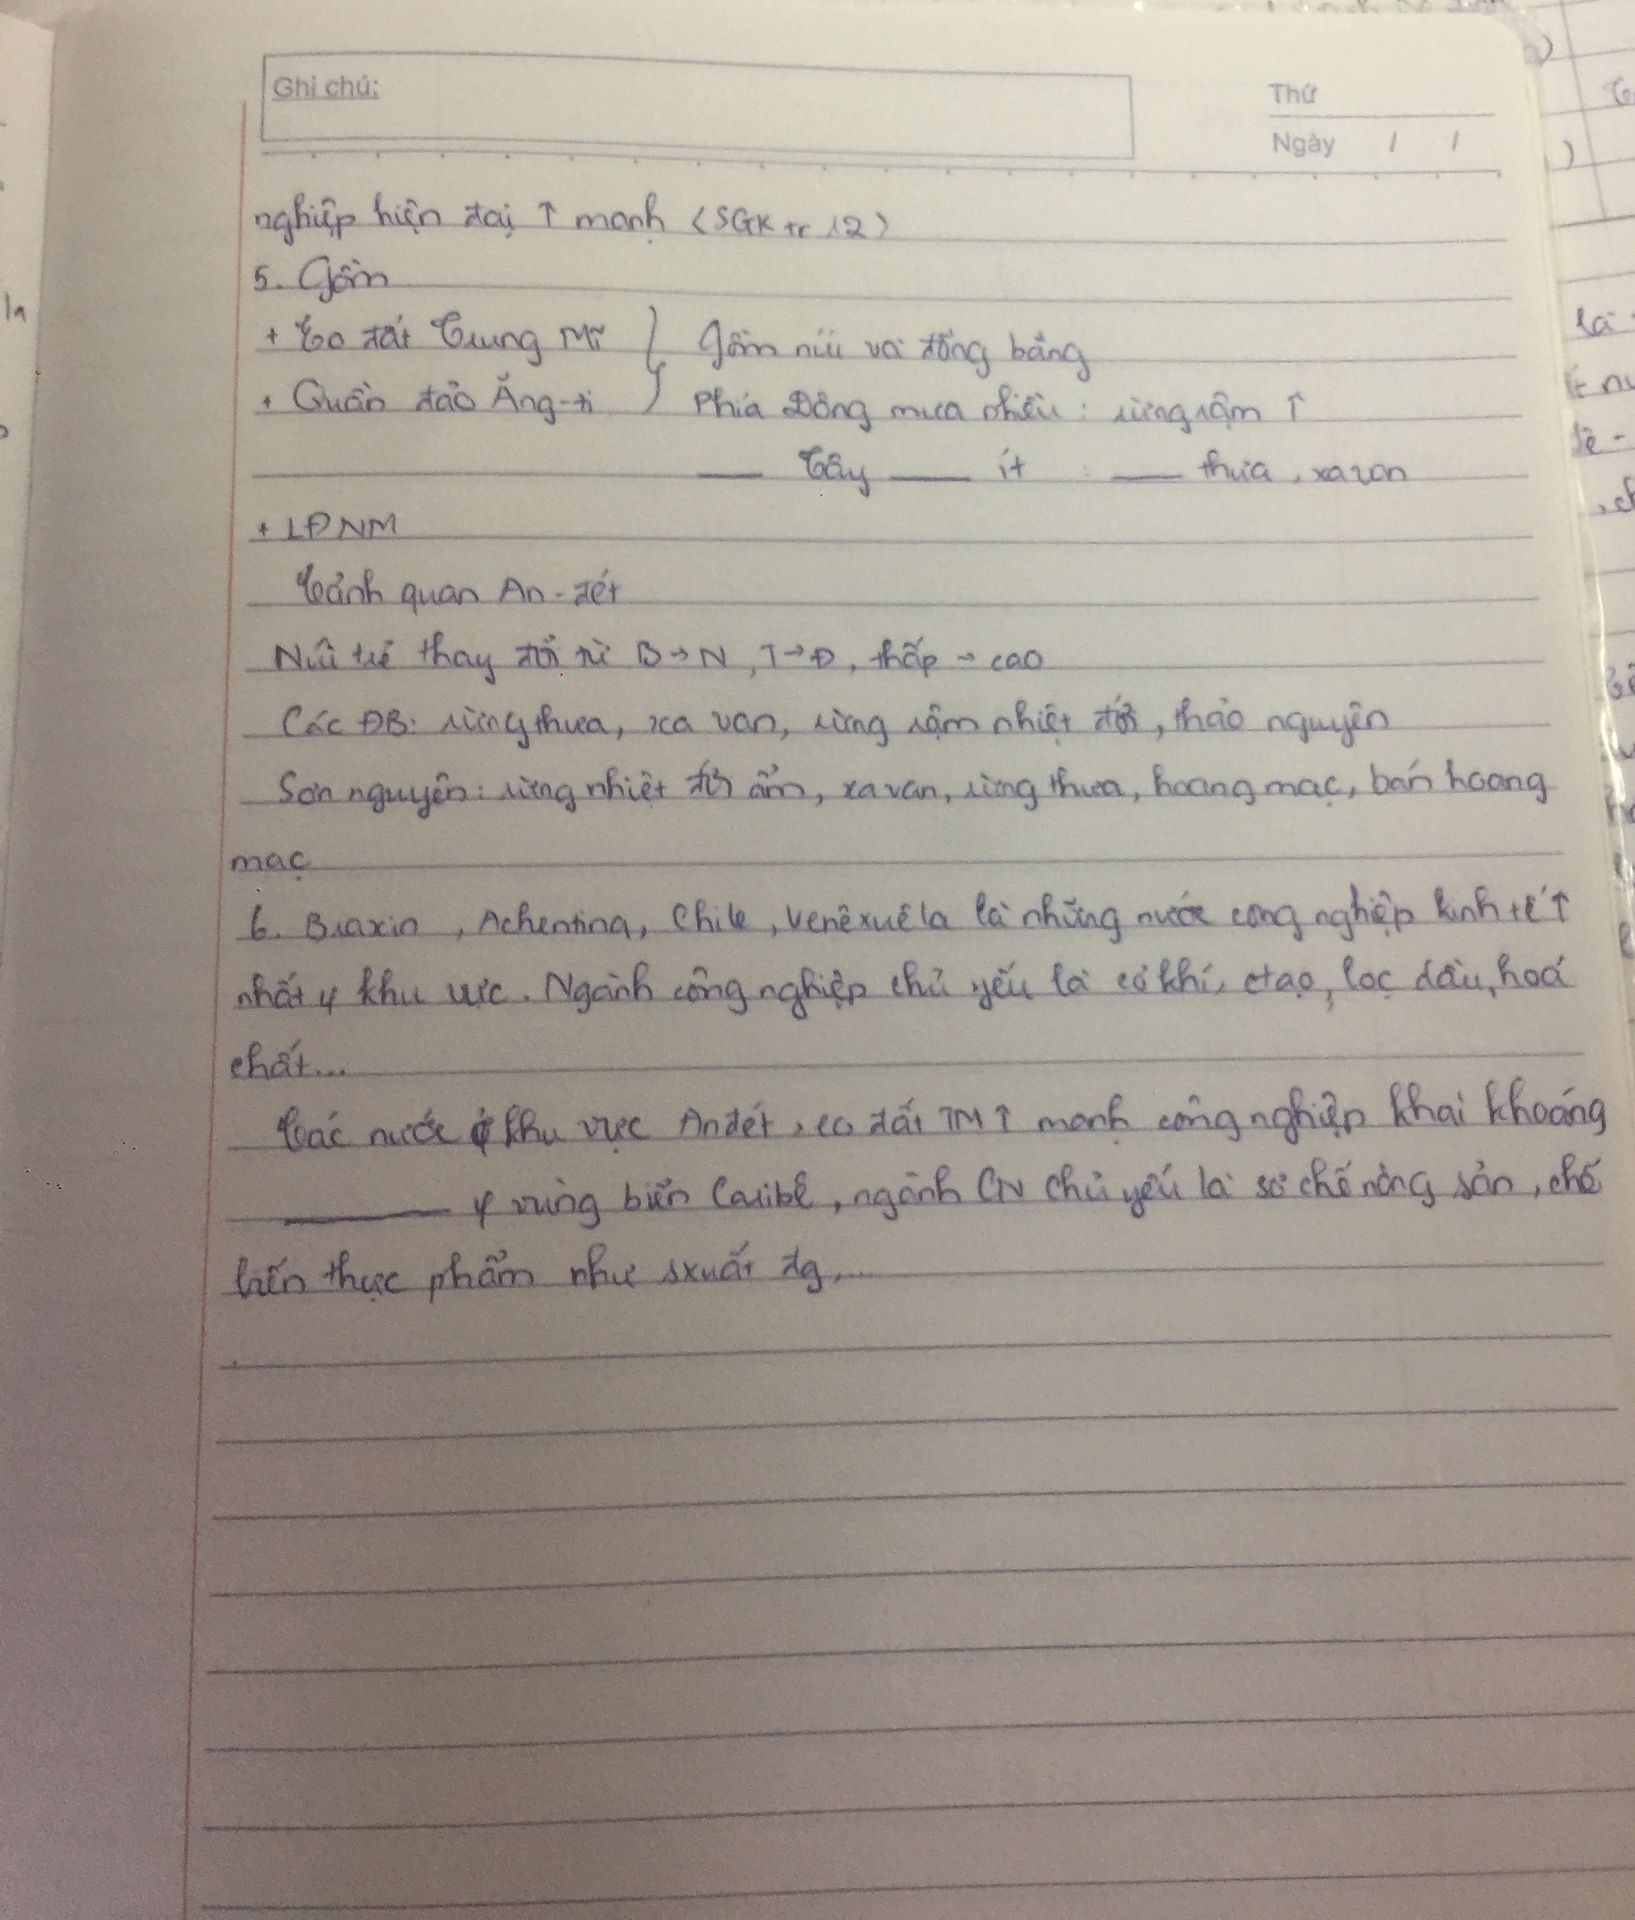 Ghi chú:
Thứ
Ngày / /
nghiệp hiện đại ↑ mạnh (SGK tr 12)
5. Gồm
+ Eo đất Trung Mĩ } Gồm núi và đồng bằng
+ Quần đảo Ăng-ti } Phía Đông mưa nhiều : rừng rậm ↑
___ Tây ___ ít : ___ thưa, xavan
+ LĐNM
Cảnh quan An-đét
Núi trẻ thay đổi từ B→N, T→Đ, thấp → cao
Các ĐB: rừng thưa, xa van, rừng rậm nhiệt đới, thảo nguyên
Sơn nguyên: rừng nhiệt đới ẩm, xavan, rừng thưa, hoang mạc, bán hoang
mạc
6. Braxin, Achentina, Chile, Venêxuêla là những nước công nghiệp kinh tế ↑
nhất khu vực. Ngành công nghiệp chủ yếu là cơ khí, ctạo, lọc dầu, hoá
chất...
Các nước ở khu vực Anđét, eo đất TM ↑ mạnh công nghiệp khai khoáng
___ vùng biển Caribê, ngành CN chủ yếu là sơ chế nông sản, chế
biến thực phẩm như sxuất đg,...